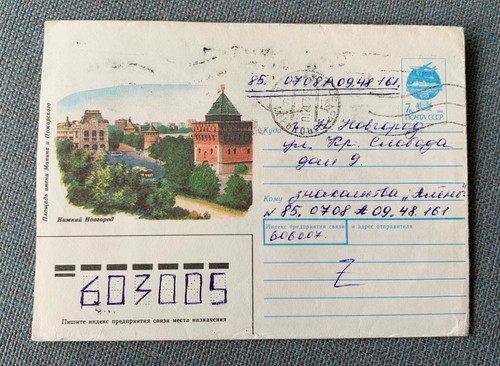 85. 0708 А 09.48.161.
7к
ПОЧТА СССР
Куда г. Н Новгород
ул. Кр. Слобода
дом 9.
Кому знакомства "Алёна"
N 85. 0708 А 09.48.161
Индекс предприятия связи и адрес отправителя
606007.
Z
Площадь имени Минина и Пожарского
Нижний Новгород
603005
Пишите индекс предприятия связи места назначения